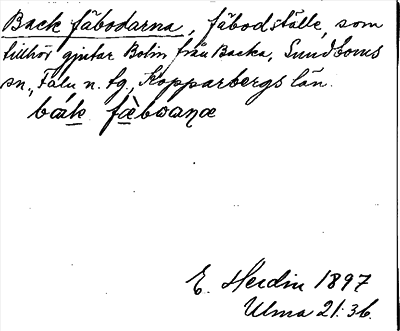 Back fäbodarna, fäbodställe, som
tillhör gjutar Bolin från Backa, Sundborns
sn., Falu n. tg, Kopparbergs län.
E. Herdin 1897
Ulma 21:36.